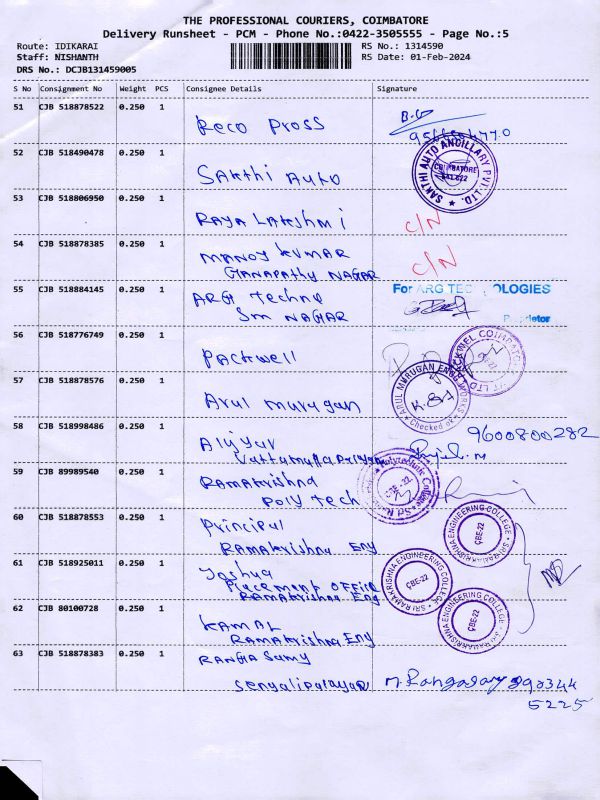 THE PROFESSIONAL COURIERS, COIMBATORE
Delivery Runsheet - PCM - Phone No.:0422-3505555 - Page No.:5
Route: IDIKARAI RS No.: 1314590
Staff: NISHANTH RS Date: 01-Feb-2024
DRS No.: DCJB131459005
S No Consignment No Weight PCS Consignee Details Signature
51 CJB 518878522 0.250 1
Reco Pross
52 CJB 518490478 0.250 1
SAKthi AUTO
SAKTHI AUTO ANCILLARY PVT. LTD.
COIMBATORE
641 022
53 CJB 518806950 0.250 1
RAYA LAKshmi C/N
54 CJB 518878385 0.250 1
MANOJ KUMAR C/N
GANAPAthy NAGAR
55 CJB 518884145 0.250 1 For ARG TECHNOLOGIES
ARG Techno
Sm NAGAR
56 CJB 518776749 0.250 1
PACKwell
57 CJB 518878576 0.250 1
Arul murugan
ARUL MURUGAN ENGG WORKS
Checked ok
58 CJB 518998486 0.250 1 9600800282
59 CJB 89989540 0.250 1
RAMAKrishna
Poly Tech
Polytechnic College
CBE-22
60 CJB 518878553 0.250 1
Principal
RAMAKrishna Eng
SRI RAMAKRISHNA ENGINEERING COLLEGE
CBE-22
61 CJB 518925011 0.250 1
Joshua
Placement Office
RAMAKrishna Eng
SRI RAMAKRISHNA ENGINEERING COLLEGE
CBE-22
62 CJB 80100728 0.250 1
KAMAL
RAMAKrishna Eng
SRI RAMAKRISHNA ENGINEERING COLLEGE
CBE-22
63 CJB 518878383 0.250 1
RANGA Samy
Sengalipalayam
5225